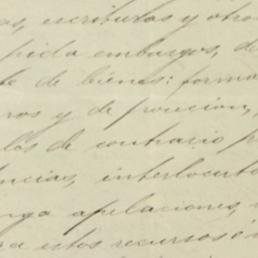 as, escrituras y otro
pida embargos, de
te de bienes: forma
ros y de posicion,
los de contrario p
encias, interlocuto
nga apelaciones,
ra estos recursos é